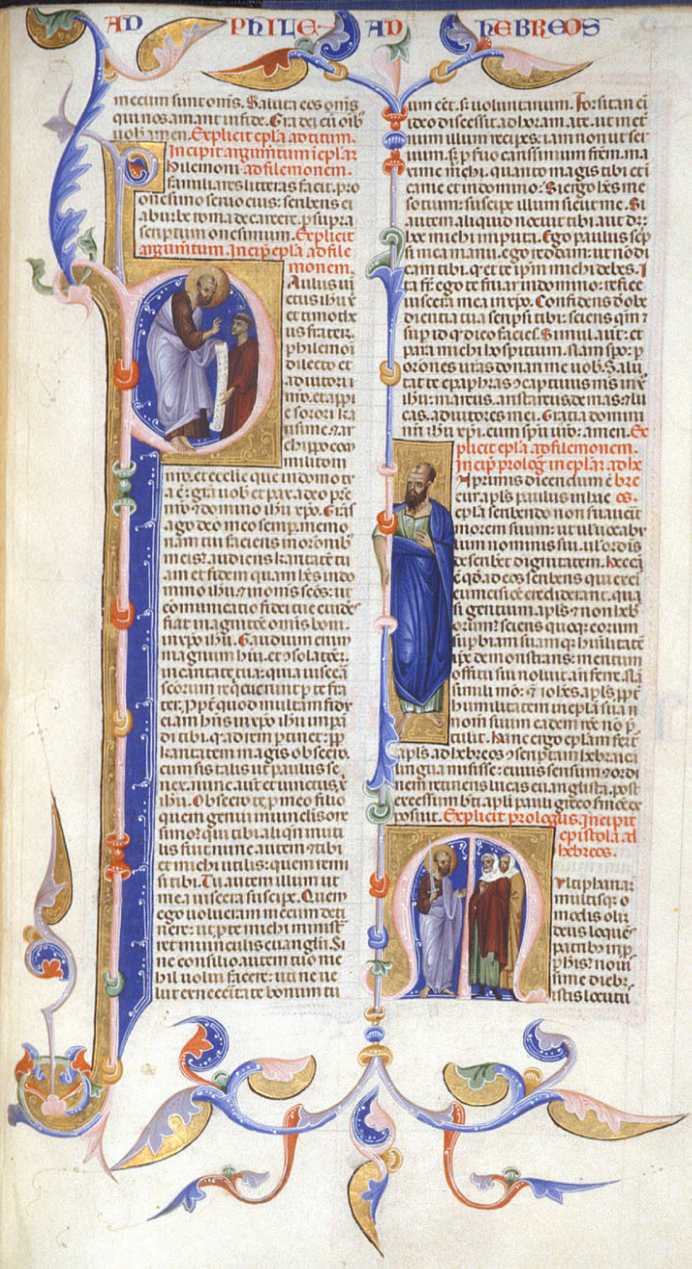 AD PHILE· AD HEBREOS
mecum sunt oms. Saluta eos qui
nos amant in fide. Gra dei cu oib
uob amen. Explicit epla ad titum.
Incipit argumtum i epla
philemoni ad filemonem.
familiares litteras facit pro
onesimo seruo eius: scribens ei
ab urbe roma de carcere p supra
scriptum onesimum. Explicit
argumtum. Incip epla ad file
monem.
Paulus ui
ctus ihu x
et timothe
us frater.
philemoi
dilecto et
adiutori
nro. et appi
e sorori ka
risime. 7 ar
chippo com
militoni
nro. et ecclie que in domo tu
a e. gra uob et pax a deo pre
nro 7 domino ihu xpo. Gras
ago deo meo semp. memo
riam tui faciens in oronib
meis. audiens karitate tu
am et fidem quam hes in do
mino ihu. 7 in omis scos: ut
comunicatio fidei tue euides
fiat in agnitoe omis boni.
in xpo ihu. Gaudium enim
magnum hui. et 9solatoez.
in caritate tua: quia uiscea
scorum requieuerunt p te fra
ter. ppt quod multam fidu
ciam hns in xpo ihu impan
di tibi. q ad rem ptinet: pp
karitatem magis obsecro.
cum sis talis ut paulus se
nex. nunc aut et uinctus x
ihu. Obsecro te p meo filio
quem genui in uinclis one
simo: qui tibi aliqn inuti
lis fuit nunc autem 7 tibi
et michi utilis: quem remi
si tibi. Tu autem illum ut
mea uiscera suscipe. Quem
ego uolueram mecum deti
nere: ut p te michi minist
ret in uinculis euangli. Si
ne consilio autem tuo nic
hil uolui facere: uti ne ue
lut ex necessitate bonum tu
um eet. s; uoluntarium. Forsitan ei
ideo discessit ad horam a te. ut in et
num illum recipes: iam non ut ser
uum. s; p suo carissimum frem. ma
xime michi. quanto magis tibi et i
carne et in domino. Si ergo hes me
sotium: suscipe illum sicut me. Si
autem aliquid nocuit tibi aut dz:
hoc michi imputa. Ego paulus scp
si mea manu. ego reddam: ut no di
cam tibi. q et te ipm michi debes. I
ta fr. ego te fruar in domino: refice
uiscera mea in xpo. Confidens d obe
dientia tua scripsi tibi: sciens qm 7
sup id q dico facies. Simul aut et
para michi hospitium. nam spo p
orones uras donari me uob. Salu
tat te epaphras 9captiuus ms in x
ihu: marcus. aristarcus demas. lu
cas. adiutores mei. Gratia domini
nri ihu xpi. cum spu uro: amen. Ex
plicit epla ad filemonem.
Incip prolog in epla ad he
breos.
In primis dicendum e
cur apls paulus in hac
epla scribendo non suauerit
morem suum: ut ul uocabu
lum nominis sui. ul ordis
describet dignitatem. hec
e qd ad eos scribens qui ex
cumcisioe crediderant. qua
si gentium apls 7 non heb
orum: sciens quoq eorum
supbiam suam q humilitate
ipe demonstrans: meritum
officii sui noluit anferre. Na
simili mo. q iohes apls ppt
humilitatem in epla sua n
nom suum eadem roe no p
tulit. hanc ergo eplam fert
apls ad hebreos 9scriptam hebraica
lingua misisse: cuius sensum 7 ordi
nem retinens lucas euanglista. post
excessum bti apli pauli greco smoe 9
posuit. Explicit prologus. Incipit
epistola ad
hebreos.
Multipharia
multisq o
modis olim
deus loquens
patrib in p
phis: nouis
sime dieb
istis locutus